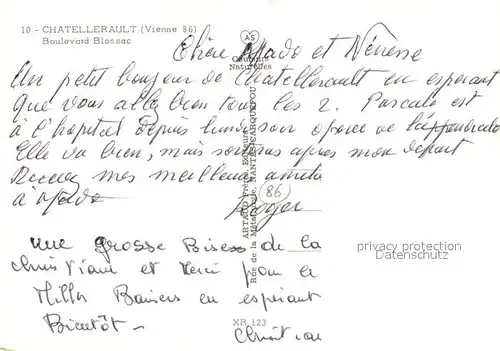 10 - CHATELLERAULT (Vienne 86)
Boulevard Blossac
AS
Couleurs
Naturelles
ARTAUD Frères, Editeurs
Rue de la Métallurgie, NANTES-CARQUEFOU
Chère Mado et Nénesse
Un petit bonjour de Chatellerault en espérant
que vous allez bien tous les 2. Pascale est
à l'hopital depuis lundi son opérée de l'appendicite
Elle va bien, mais sortira après mon départ
Recevez mes meilleures amitiés
à Mado
86
Roger
une grosse Bises de la
Christiane et Merci pour la
Mille Baisers en espérant
Bientôt -
XR 123
Christiane
privacy protection
Datenschutz